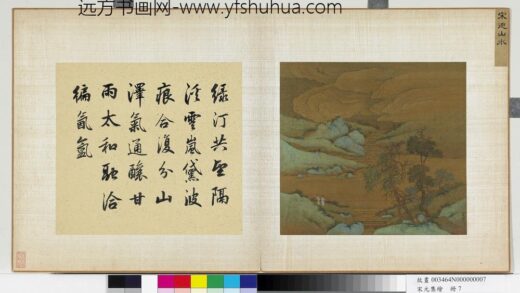 远方书画网-www.yfshuhua.com
宋迪山水
綠汀共望隔
溪雲嵐黛波
痕合復分山
澤氣通釀甘
雨太和融洽
徧氤氳
故畫 003464N000000007
宋元集繪 冊 7